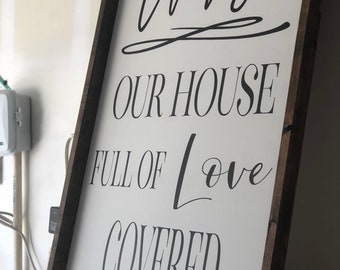 OUR HOUSE
FULL OF Love
COVERED